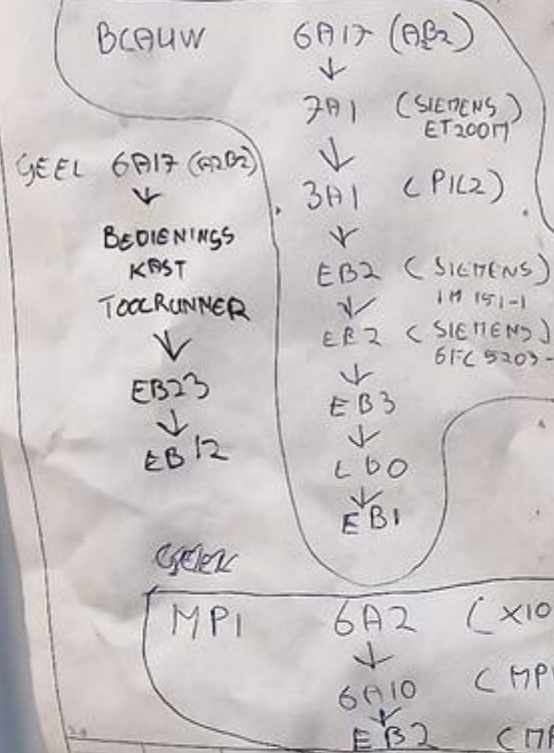 BLAUW 6A17 (A1B2)
↓
7A1 (SIEMENS)
ET200M
↓
3A1 (P1L2)
↓
EB2 (SIEMENS)
IM 151-1
↓
EB2 (SIEMENS)
6FC 5203-
↓
EB3
↓
↓
EB1
GEEL 6A17 (A2B2)
↓
BEDIENINGS
KAST
TOOLRUNNER
↓
EB23
↓
EB12
MPI 6A2 (X10
↓
6A10 (MPI
↓
EB2